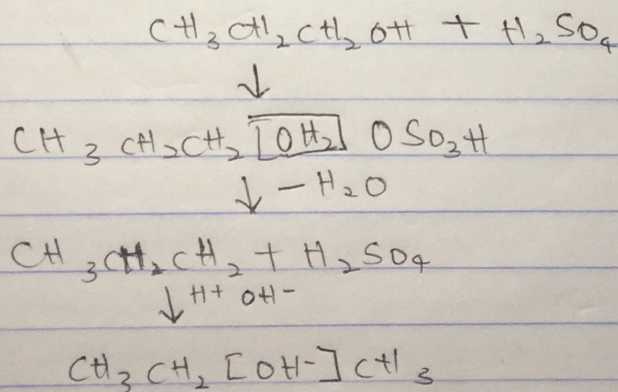 CH₃CH₂CH₂OH + H₂SO₄
↓
CH₃CH₂CH₂[OH₂] OSO₃H
↓ – H₂O
CH₃CH₂CH₂ + H₂SO₄
↓ H+ OH-
CH₃CH₂[OH-]CH₃